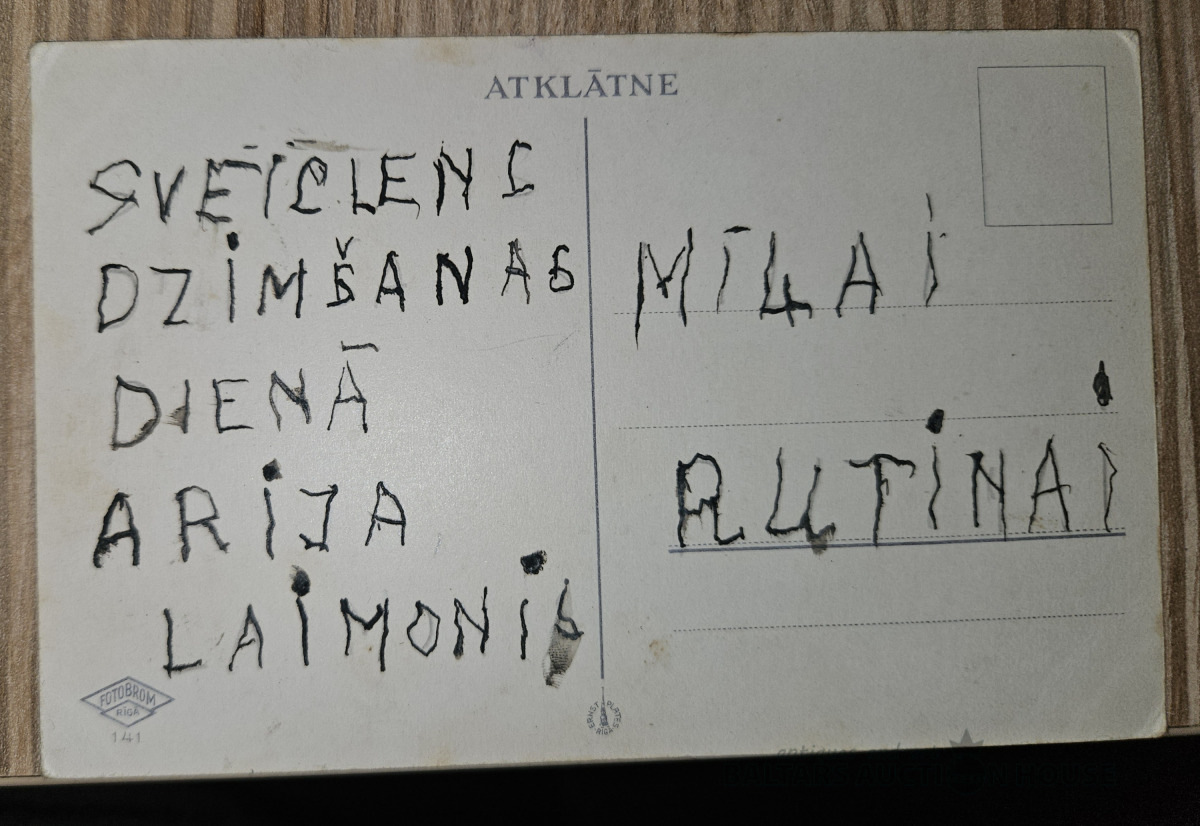 ATKLĀTNE
SVĒĪCIENS
DZIMŠANAS
DIENĀ
ARIJA
LAIMONIS
MĪĻAI
RUTIŅAI
FOTOBROM
RĪGĀ
141
ERNST PLATES
RĪGĀ